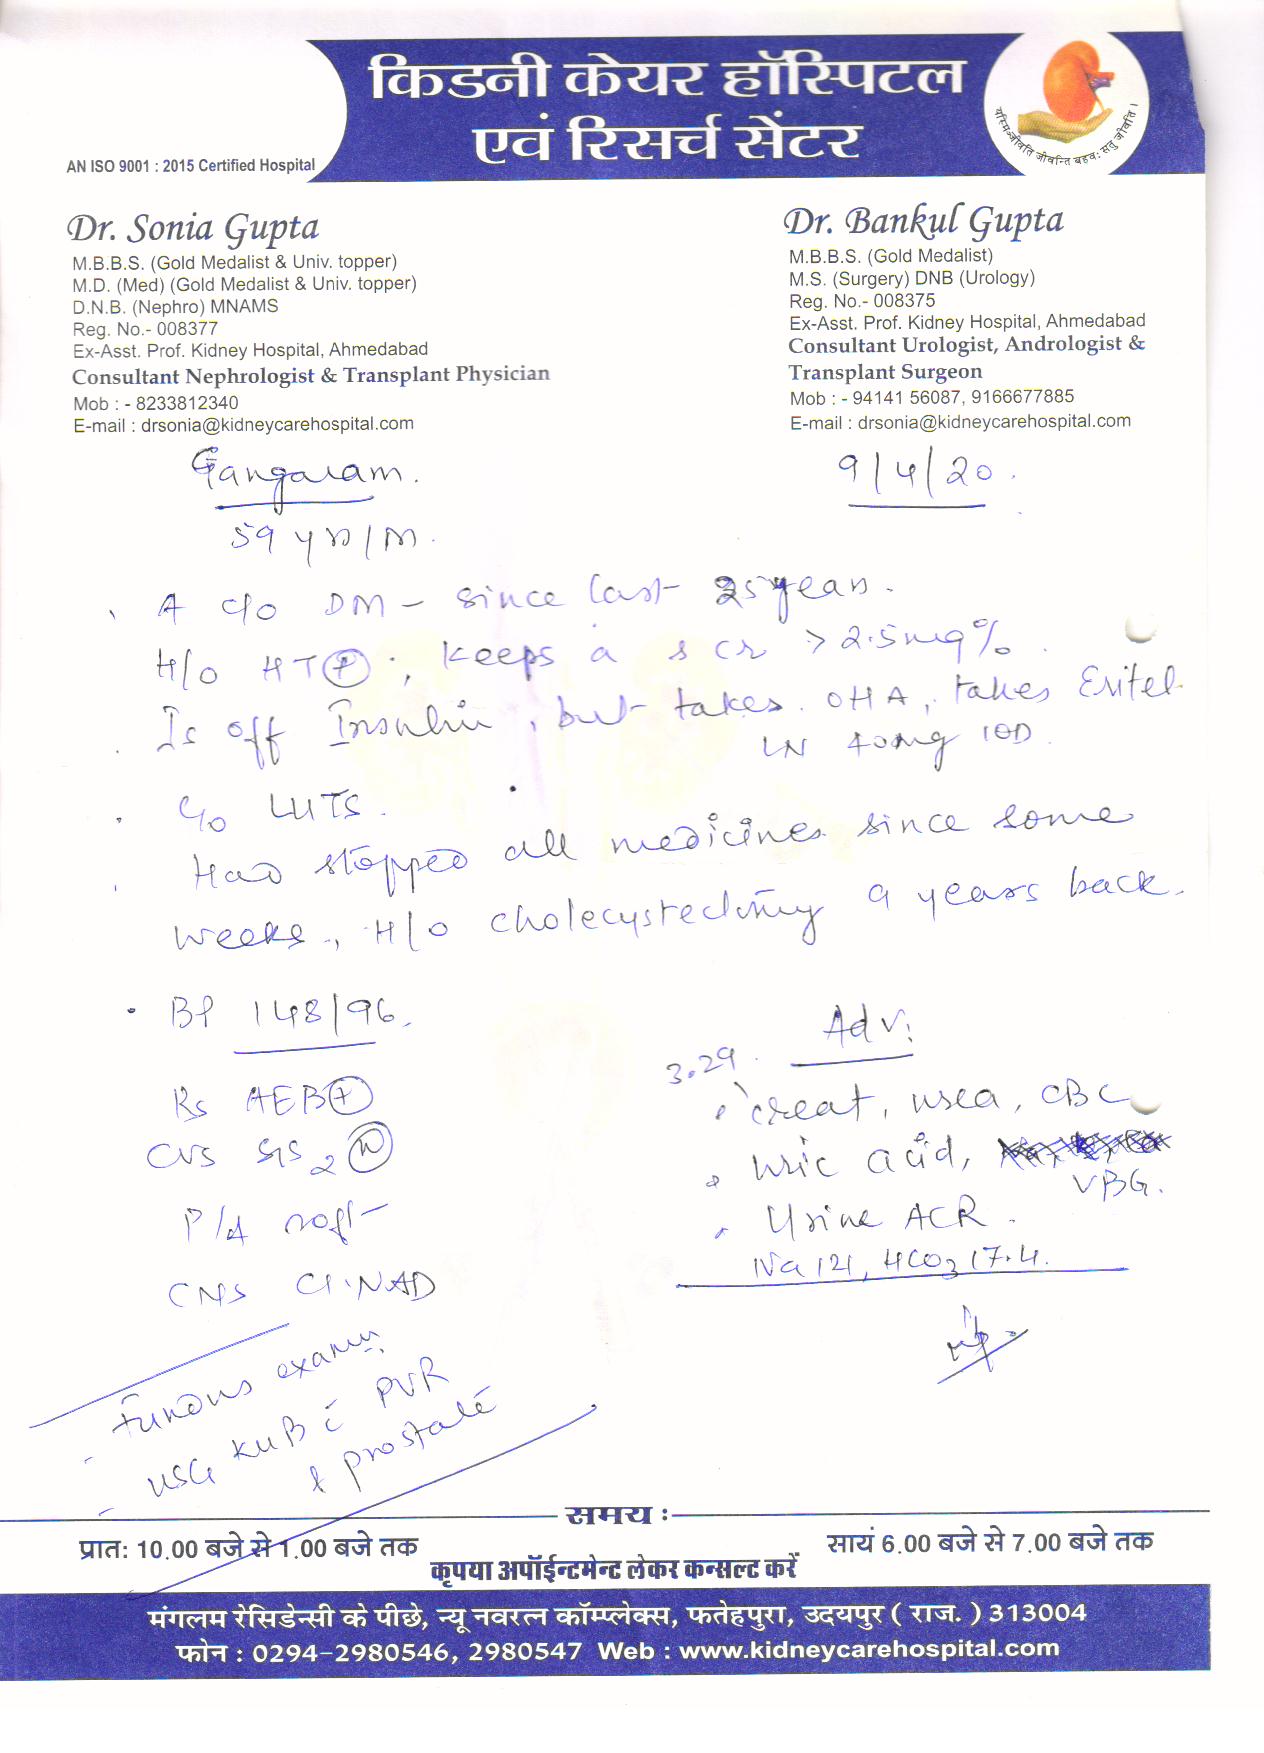 किडनी केयर हॉस्पिटल
एवं रिसर्च सेंटर
यस्मिञ्जीवति जीवन्ति बहवः सतु जीवति ।
AN ISO 9001 : 2015 Certified Hospital
Dr. Sonia Gupta
M.B.B.S. (Gold Medalist & Univ. topper)
M.D. (Med) (Gold Medalist & Univ. topper)
D.N.B. (Nephro) MNAMS
Reg. No.- 008377
Ex-Asst. Prof. Kidney Hospital, Ahmedabad
Consultant Nephrologist & Transplant Physician
Mob : - 8233812340
E-mail : drsonia@kidneycarehospital.com
Dr. Bankul Gupta
M.B.B.S. (Gold Medalist)
M.S. (Surgery) DNB (Urology)
Reg. No.- 008375
Ex-Asst. Prof. Kidney Hospital, Ahmedabad
Consultant Urologist, Andrologist &
Transplant Surgeon
Mob : - 94141 56087, 9166677885
E-mail : drsonia@kidneycarehospital.com
Gangaram.
9/4/20.
59 yrs/M.
A c/o DM - since last 25 years.
H/o HT+; keeps a s cr > 2.5mg%.
Is off Insulin, but takes OHA, takes Eritel
LN 40mg 1OD.
C/o LUTS.
Had stopped all medicines since some
weeks., H/o cholecystectomy 9 years back.
BP 148/96.
Rs AEB+
CVS S1S2 N
P/A soft
CNS Cl. NAD
- fundus exam
- USG KUB c̄ PVR
& prostate
Adv:
3.29.
creat, urea, CBC
uric acid,
VBG.
Urine ACR.
Na 121, HCO3 17.4.
समय :
प्रात: 10.00 बजे से 1.00 बजे तक
सायं 6.00 बजे से 7.00 बजे तक
कृपया अपॉईन्टमेन्ट लेकर कन्सल्ट करें
मंगलम रेसिडेन्सी के पीछे, न्यू नवरत्न कॉम्प्लेक्स, फतेहपुरा, उदयपुर ( राज. ) 313004
फोन : 0294-2980546, 2980547 Web : www.kidneycarehospital.com